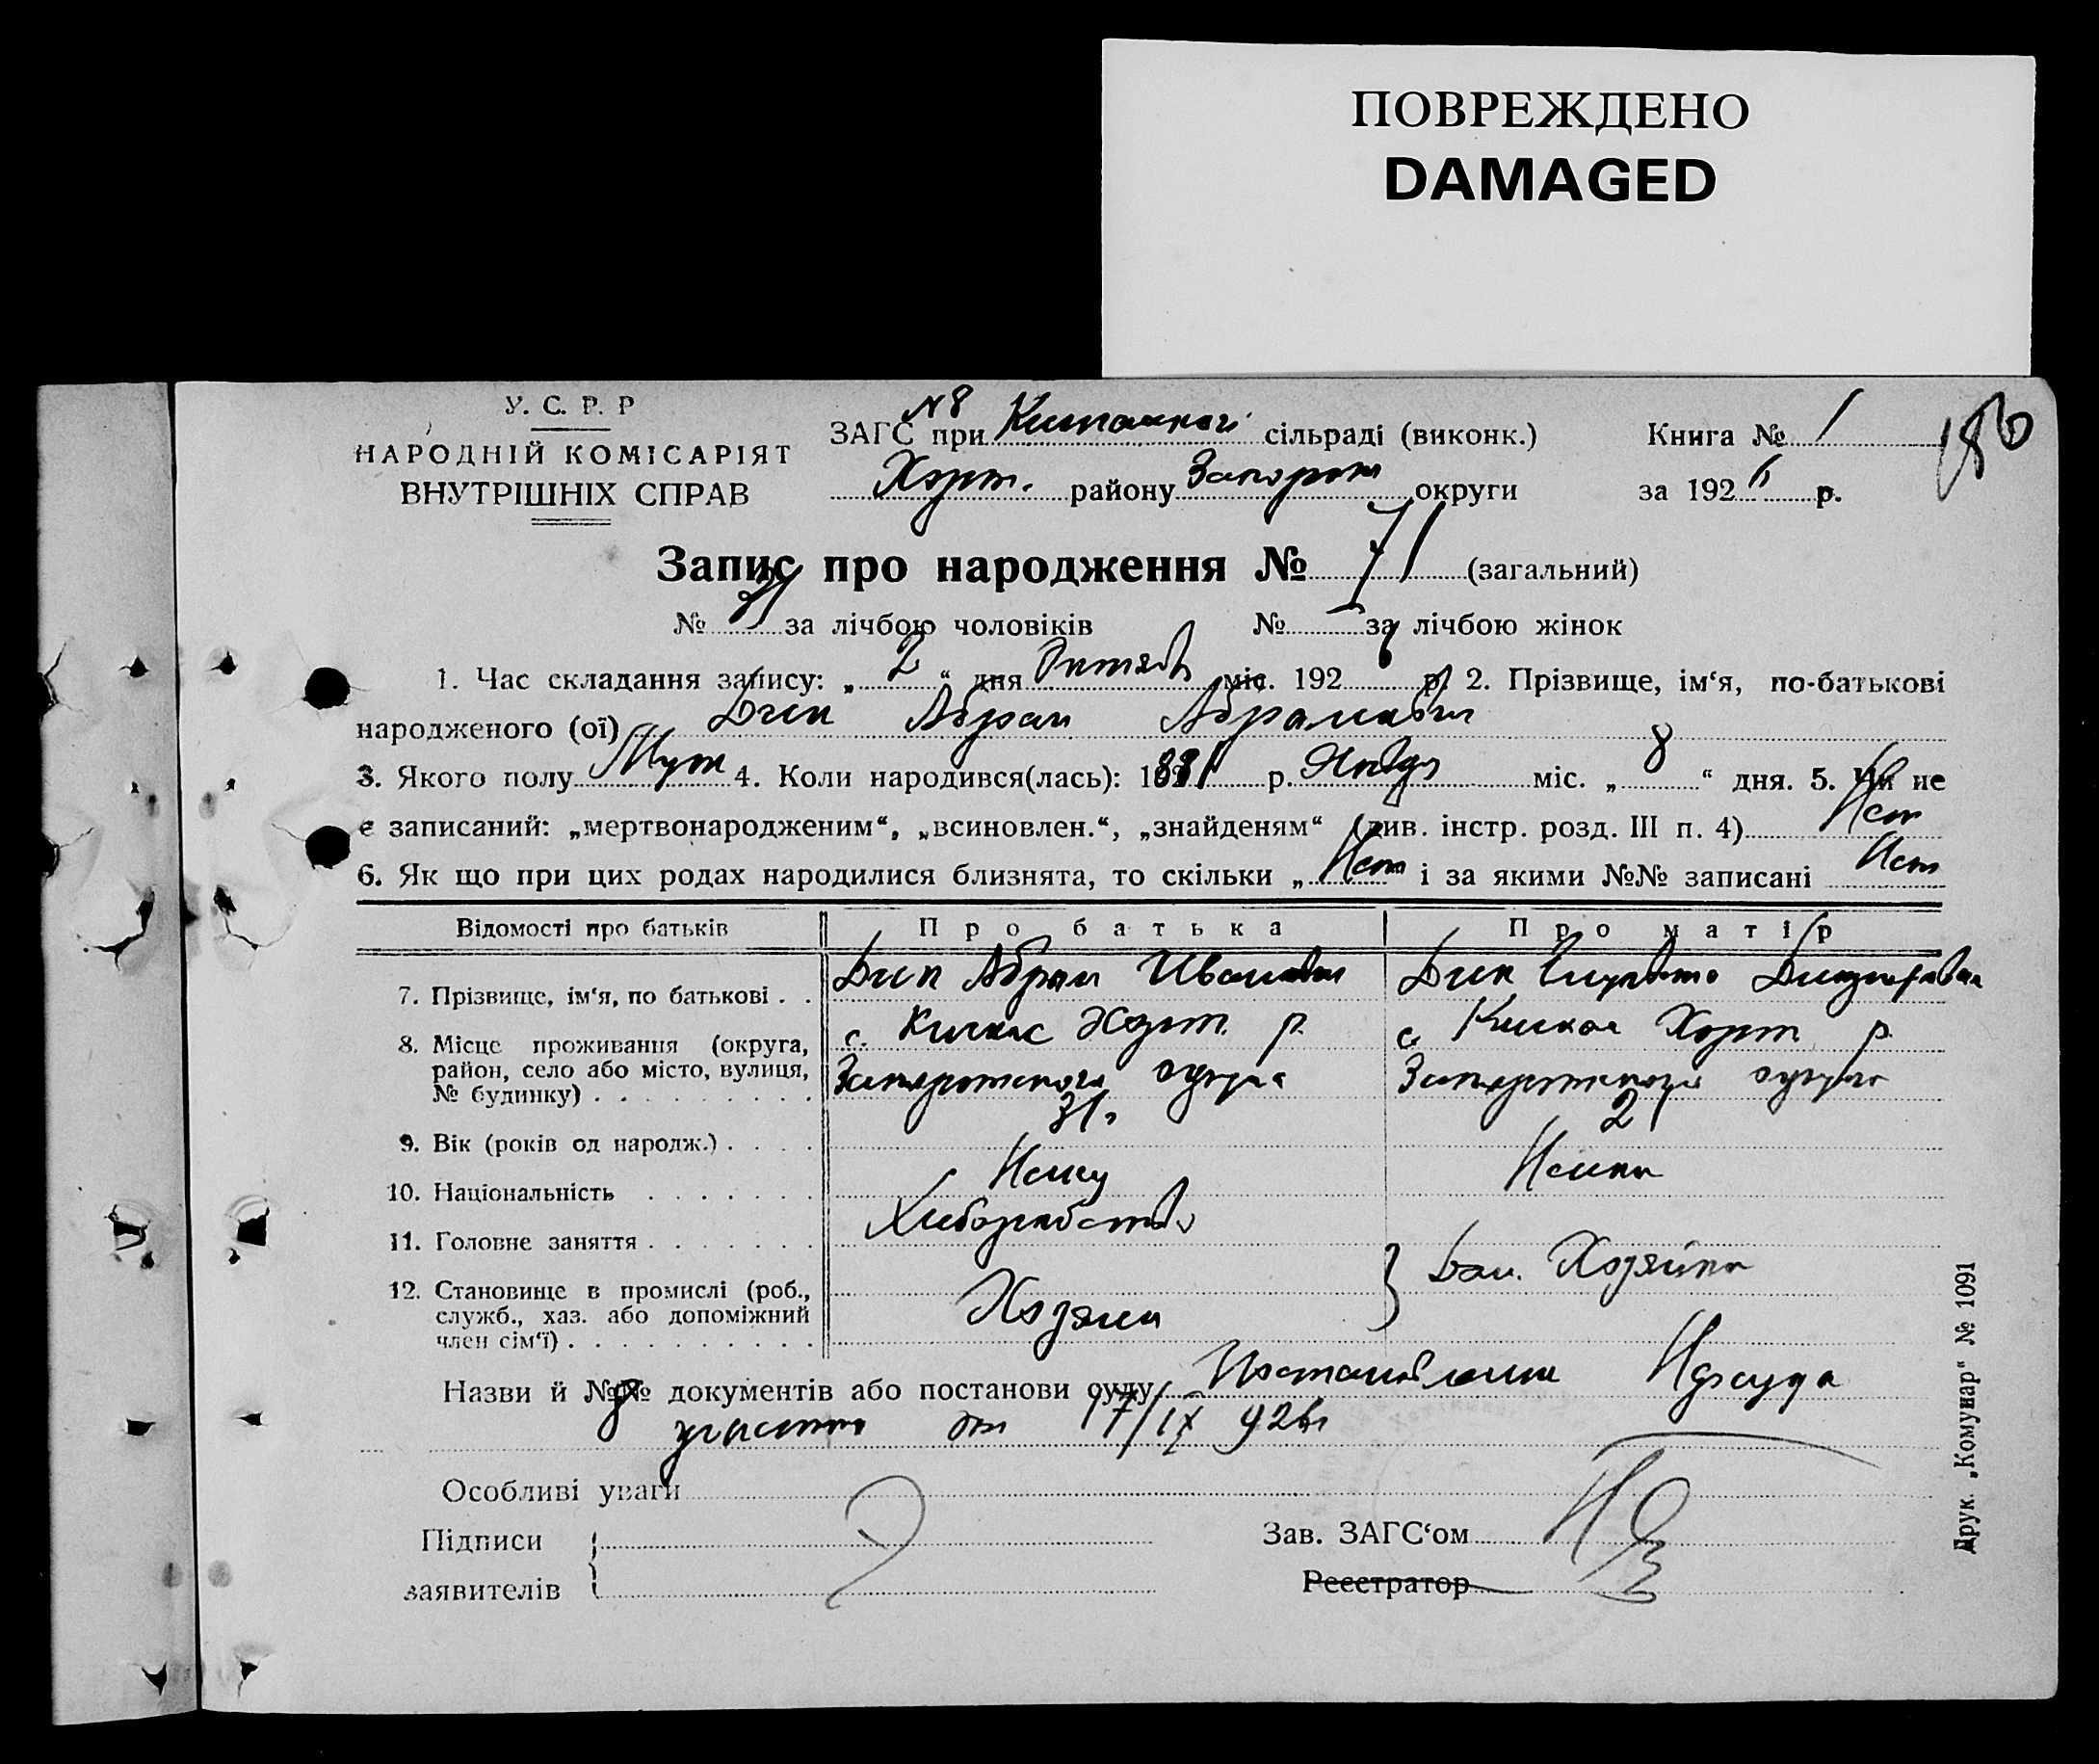 ПОВРЕЖДЕНО
DAMAGED
У. С. Р. Р
НАРОДНІЙ КОМІСАРІЯТ
ВНУТРІШНІХ СПРАВ
N8
ЗАГС при Кичкаской сільраді (виконк.)
Хорт. району Запорож округи
Книга № 1
за 1926 р.
180
Запис про народження № 71 (загальний)
№ за лічбою чоловіків № за лічбою жінок
1. Час складання запису: „ 2 “ дня Октяб міс. 1926 р. 2. Прізвище, ім‘я, по-батькові
народженого (ої) Дик Абрам Абрамович
3. Якого полу Муж 4. Коли народився(лась): 1881 р. Января міс. „ 8 “ дня. 5. Чи не
є записаний: „мертвонародженим“, „всиновлен.“, „знайденям“ (див. інстр. розд. III п. 4) Нет
6. Як що при цих родах народилися близнята, то скільки „ Нет і за якими №№ записані Нет
Відомості про батьків Про батька Про матір
7. Прізвище, ім‘я, по батькові . . Дик Абрам Иванович Дик
8. Місце проживання (округа, с. Кичкас Хорт. р. с. Кичкас Хорт. р.
район, село або місто, вулиця,
№ будинку) . Запорожского округа Запорожского округа
9. Вік (років од народж.) . 31 21
10. Національність . Немец Немка
11. Головне заняття . Хлеборобство
12. Становище в промислі (роб.,
служб., хаз. або допоміжний
член сім‘ї) . Хозяин } Дом. Хозяйка
Назви й №№ документів або постанови суду Постановление Нарсуда
8 участка от 17/IX 926г
Особливі уваги
Підписи
заявителів
Зав. ЗАГС‘ом
Реєстратор
Друк. „Комунар“ № 1091